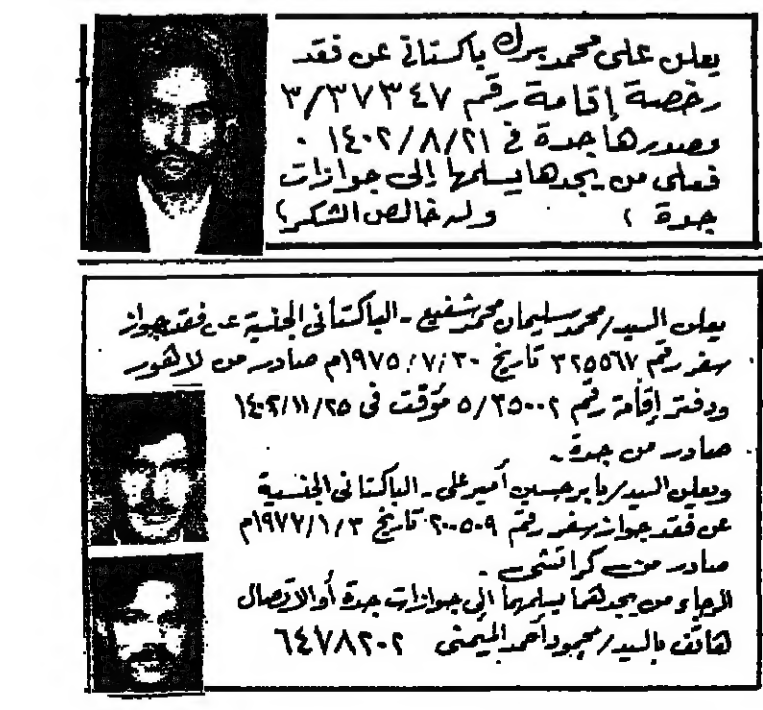 يعلن على محمد برك باكستانى عن فقد
رخصة إقامة رقم ٣/٣٧٣٤٧
وصدرها جدة في ١٤٠٢/٨/٢١ ٠
فعلى من يجدها يسلمها إلى جوازات
جدة ، وله خالص الشكر ؟
يعلن السيد/محمد سليمان محمد شفيع - الباكستانى الجنسية عن فقد جواز
سفر رقم ٣٢٥٥٦٧ تاريخ ١٩٧٥/٧/٣٠م صادر من لاهور
ودفتر إقامة رقم ٥/٣٥٠٠٢ مؤقت فى ١٤٠٢/١١/٢٥
صادر من جدة -
ويعلن السيد/بابر حسين أمير على - الباكستانى الجنسية
عن فقد جواز سفر رقم ٢٠٠٥٠٩ تاريخ ١٩٧٧/١/٣م
صادر من كراتشى -
الرجاء من يجدهما يسلمهما إلى جوازات جدة أو الاتصال
هاتف بالسيد/محمود أحمد الميمنى ٦٤٧٨٢٠٢